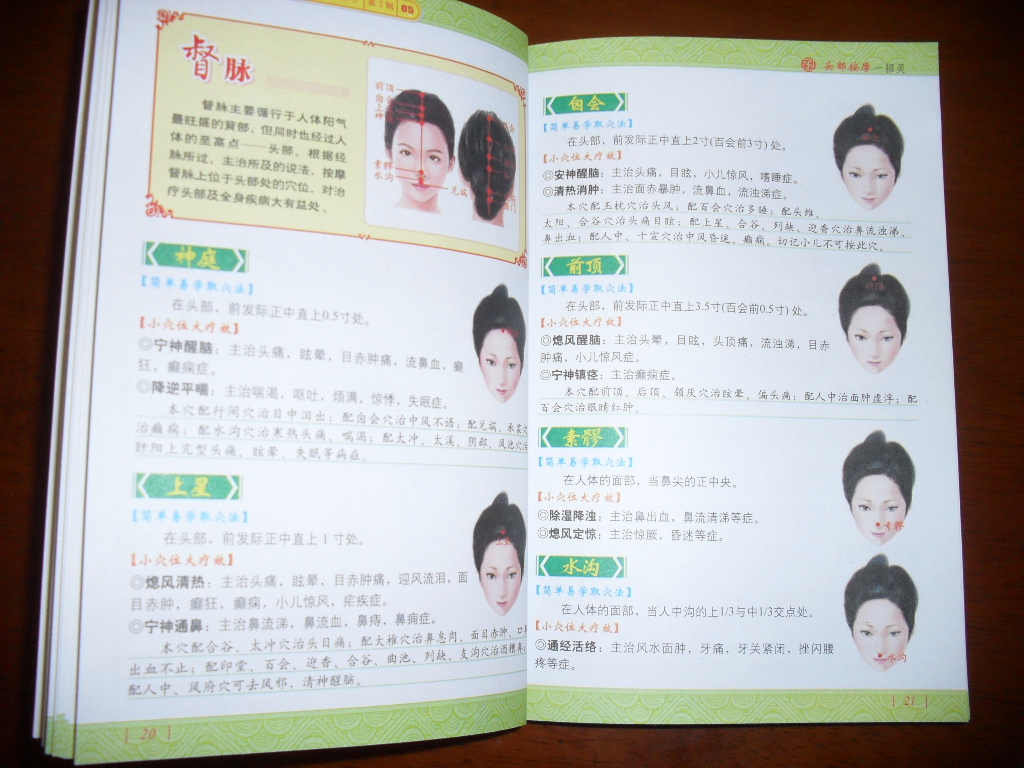 第2辑 05
督脉
督脉主要循行于人体阳气
最旺盛的背部，但同时也经过人
体的至高点——头部。根据经
脉所过、主治所及的说法，按摩
督脉上位于头部处的穴位，对治
疗头部及全身疾病大有益处。
前顶
囟会
上星
神
素髎
水沟
兑端
神庭
【简单易学取穴法】
在头部，前发际正中直上0.5寸处。
【小穴位大疗效】
◎宁神醒脑：主治头痛，眩晕，目赤肿痛，流鼻血，癫
狂，癫痫症。
◎降逆平喘：主治喘渴，呕吐，烦满，惊悸，失眠症。
本穴配行间穴治目中泪出；配囟会穴治中风不语；配兑端、承浆穴
治癫痫；配水沟穴治寒热头痛、喘渴；配太冲、太溪、阴郄、风池穴治
肝阳上亢型头痛、眩晕、失眠等病症。
上星
【简单易学取穴法】
在头部，前发际正中直上1寸处。
【小穴位大疗效】
◎熄风清热：主治头痛，眩晕，目赤肿痛，迎风流泪，面
目赤肿，癫狂，癫痫，小儿惊风，疟疾症。
◎宁神通鼻：主治鼻流涕，鼻流血，鼻痔，鼻痈症。
本穴配合谷、太冲穴治头目痛；配大椎穴治鼻息肉、面目赤肿、口鼻
出血不止；配印堂、百会、迎香、合谷、曲池、列缺、支沟穴治酒糟鼻；
配人中、风府穴可去风邪，清神醒脑。
20
头部按摩一招灵
囟会
【简单易学取穴法】
在头部，前发际正中直上2寸(百会前3寸)处。
【小穴位大疗效】
◎安神醒脑：主治头痛，目眩，小儿惊风，嗜睡症。
◎清热消肿：主治面赤暴肿，流鼻血，流浊涕症。
本穴配玉枕穴治头风；配百会穴治多睡；配头维、
太阳、合谷穴治头痛目眩；配上星、合谷、列缺、迎香穴治鼻流浊涕、
鼻出血；配人中、十宣穴治中风昏迷、癫痫。切记小儿不可按此穴。
前顶
【简单易学取穴法】
在头部，前发际正中直上3.5寸(百会前0.5寸)处。
【小穴位大疗效】
◎熄风醒脑：主治头晕，目眩，头顶痛，流浊涕，目赤
肿痛，小儿惊风症。
◎宁神镇痉：主治癫痫症。
本穴配前顶、后顶、颔厌穴治眩晕、偏头痛；配人中治面肿虚浮；配
百会穴治眼睛红肿。
前顶
素髎
【简单易学取穴法】
在人体的面部，当鼻尖的正中央。
【小穴位大疗效】
◎除湿降浊：主治鼻出血，鼻流清涕等症。
◎熄风定惊：主治惊厥，昏迷等症。
素髎
水沟
【简单易学取穴法】
在人体的面部，当人中沟的上1/3与中1/3交点处。
【小穴位大疗效】
◎通经活络：主治风水面肿，牙痛，牙关紧闭，挫闪腰
疼等症。
水沟
21